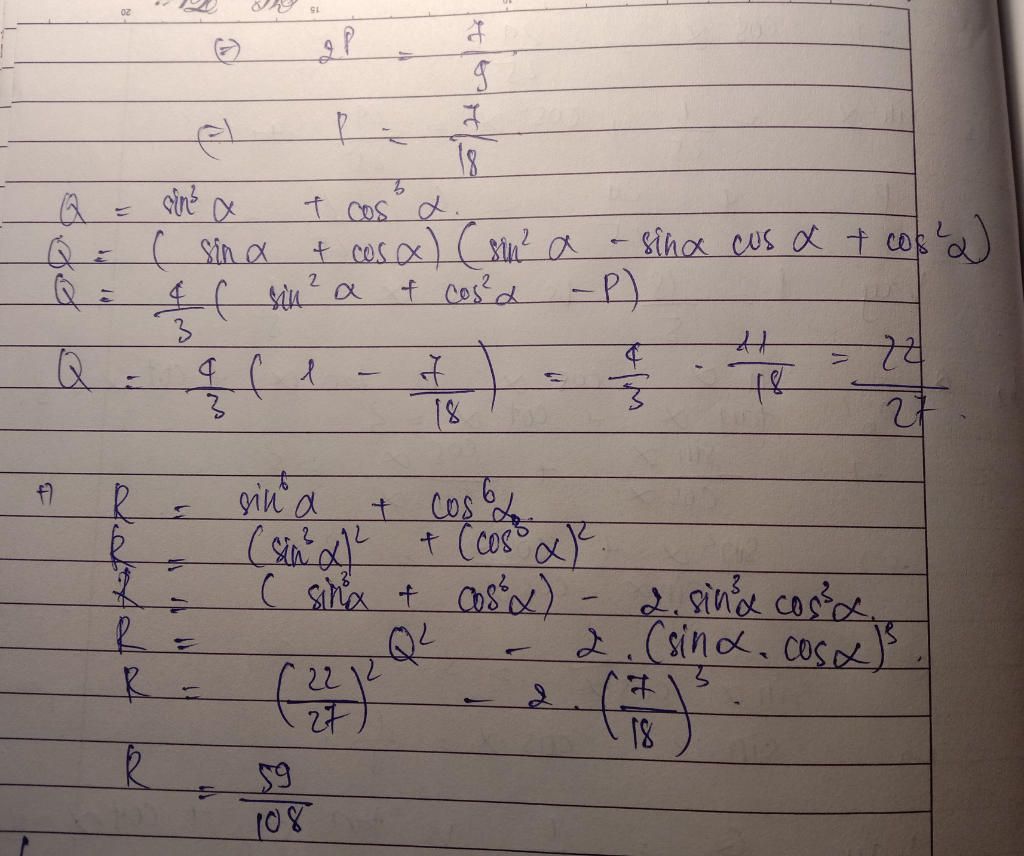 (=) 2P = 7/9
(=) P = 7/18
Q = sin³ α + cos³ α.
Q = ( sin α + cos α) ( sin² α - sin α cos α + cos² α)
Q = 4/3 ( sin² α + cos² α - P)
Q = 4/3 ( 1 - 7/18 ) = 4/3 . 11/18 = 22/27.
+) R = sin⁶ α + cos⁶ α.
R = (sin³ α)² + (cos³ α)².
R = ( sin³α + cos³α) - 2. sin³α cos³α.
R = Q² - 2. (sin α. cos α)³.
R = (22/27)² - 2. (7/18)³.
R = 59/108